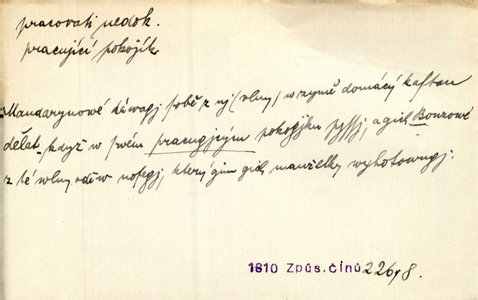 pracovati nedok.
pracující pokojík
Mandarynowé dáwagj sobě z nj (wlny) w zymě domácý kaftan
dělat, když w swém pracugjcým pokogjku syďj, a gich Bonzowé
z té wlny oděw nosegj, který gim gich manželky wyhotowugj.
1810 Způs.čínů 226,8.